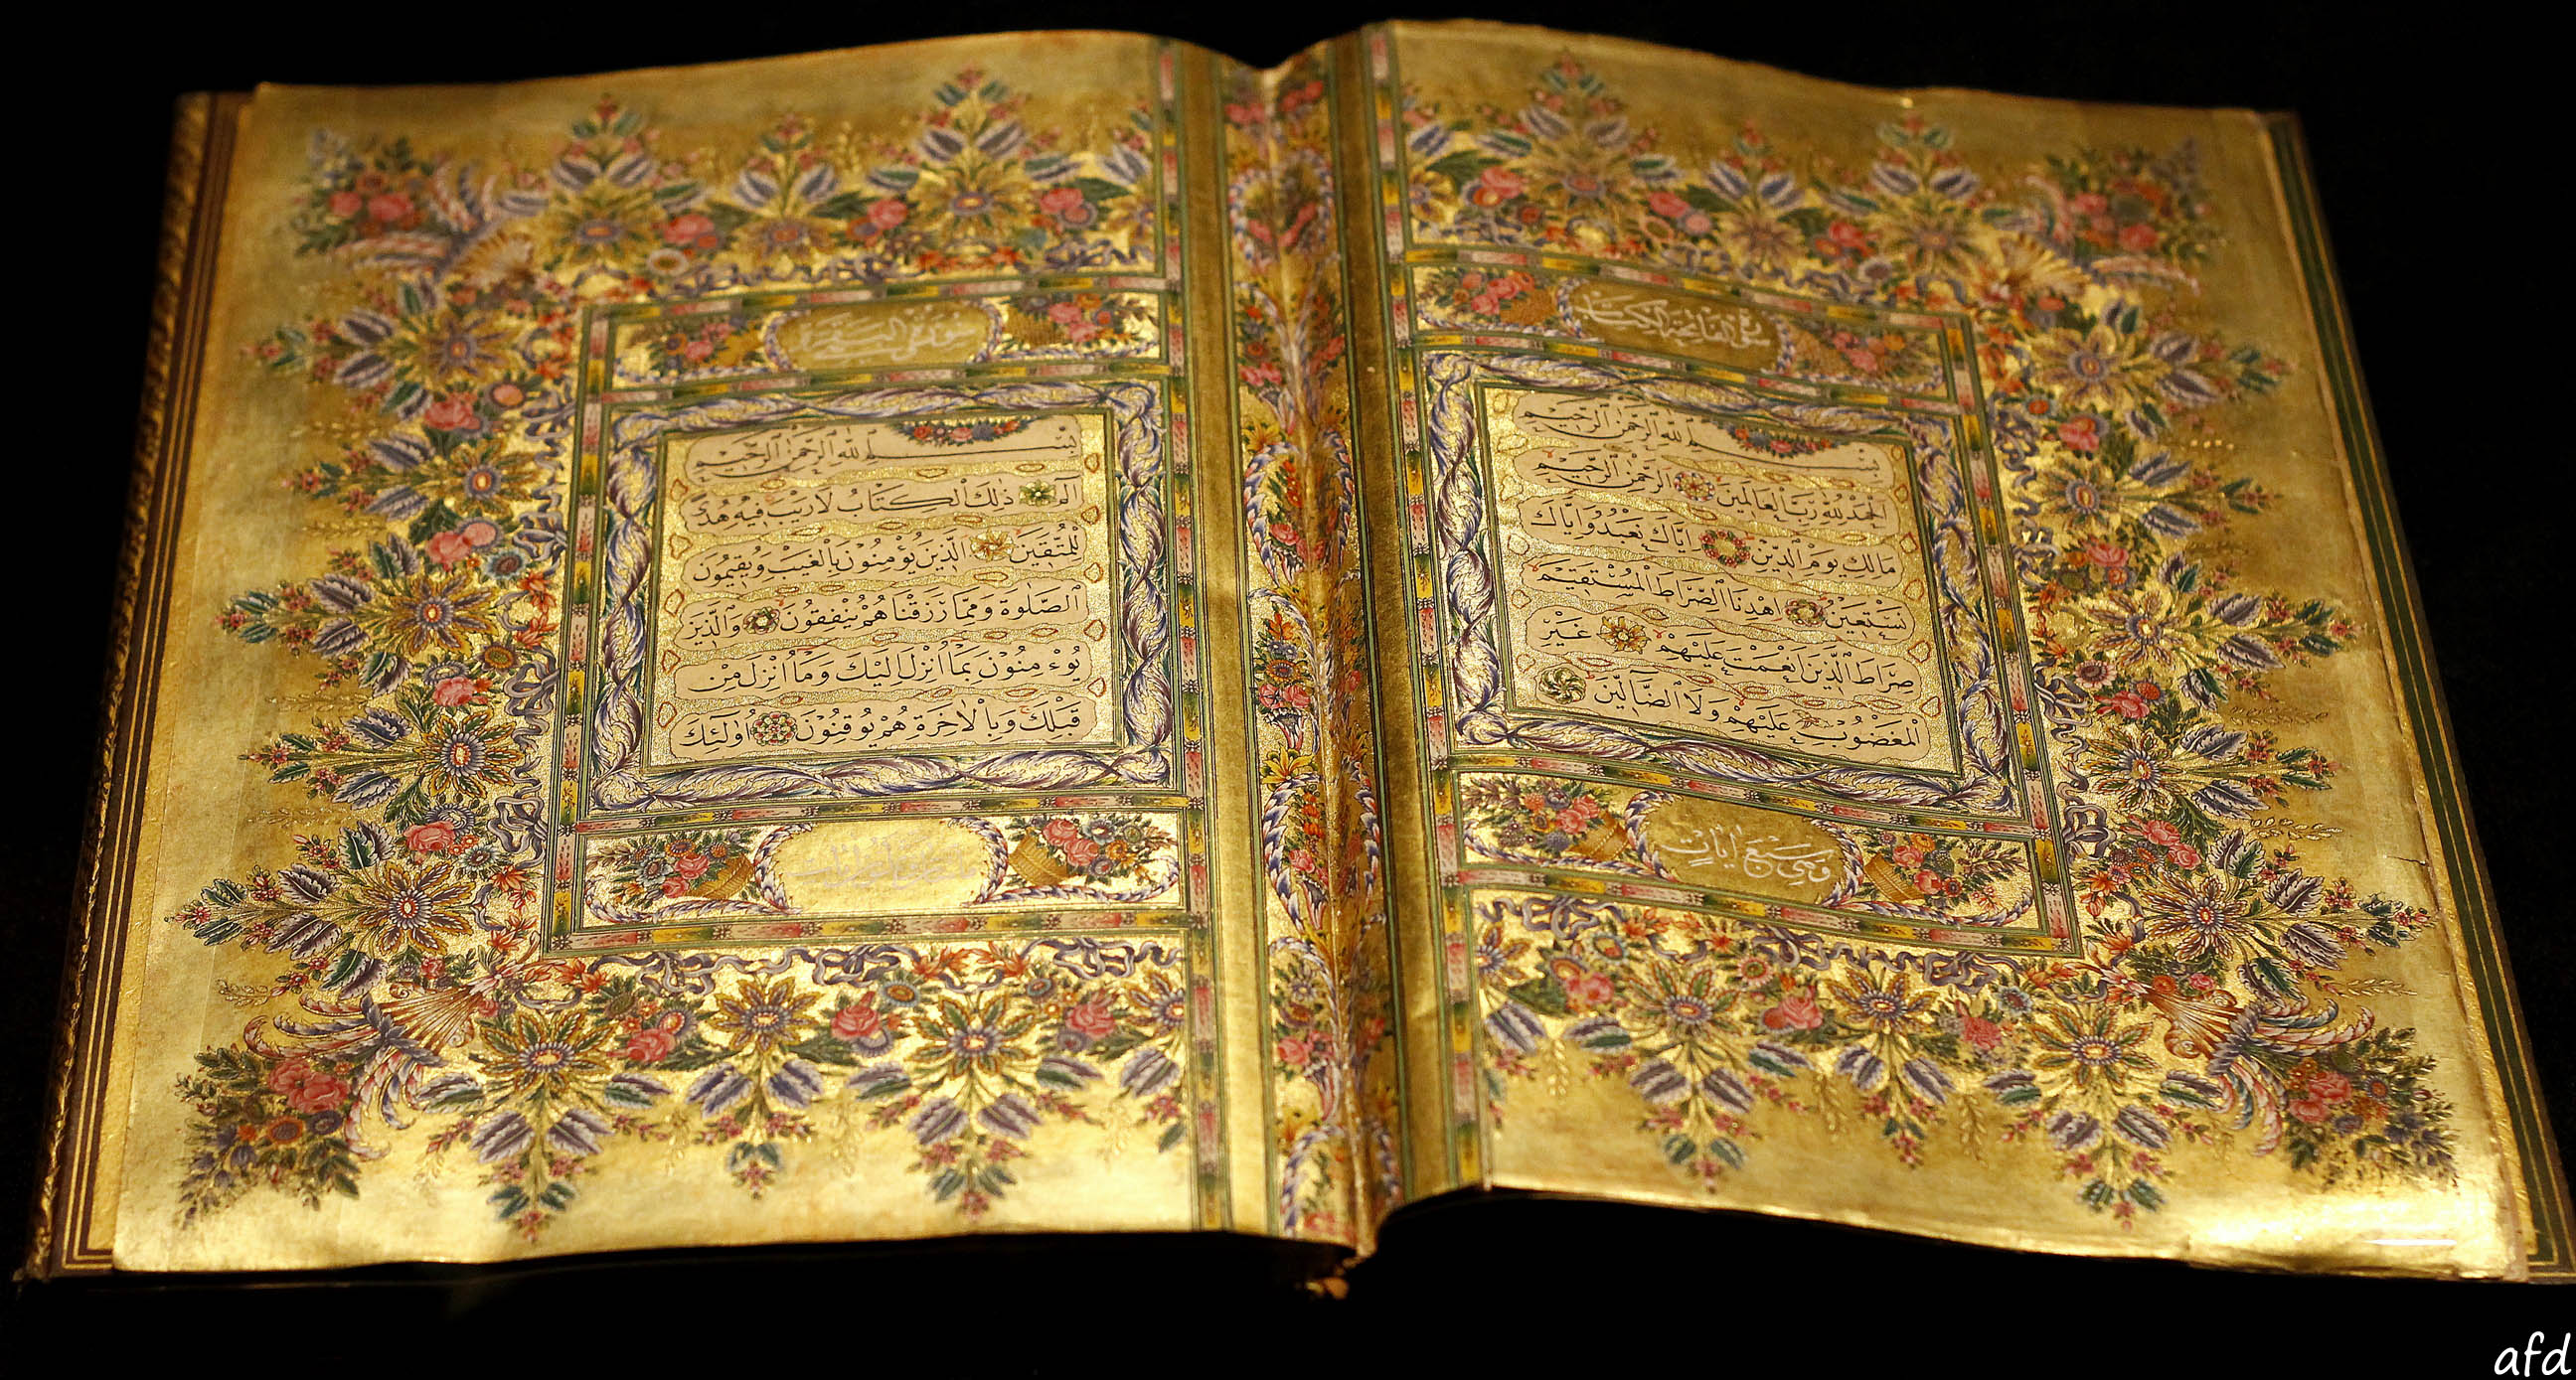 سورة الفاتحة الكتاب
بِسْمِ اللّٰهِ الرَّحْمٰنِ الرَّحِيمِ
اَلْحَمْدُ لِلّٰهِ رَبِّ الْعَالَمِينَ الرَّحْمٰنِ الرَّحِيمِ
مَالِكِ يَوْمِ الدِّينِ اِيَّاكَ نَعْبُدُ وَاِيَّاكَ
نَسْتَعِينُ اِهْدِنَا الصِّرَاطَ الْمُسْتَقِيمَ
صِرَاطَ الَّذِينَ اَنْعَمْتَ عَلَيْهِمْ غَيْرِ
الْمَغْضُوبِ عَلَيْهِمْ وَلَا الضَّالِّينَ
وهي سبع اٰيات
سورة البقرة
بِسْمِ اللّٰهِ الرَّحْمٰنِ الرَّحِيمِ
الٓمٓ ذٰلِكَ الْكِتَابُ لَا رَيْبَ فِيهِ هُدًى
لِلْمُتَّقِينَ الَّذِينَ يُؤْمِنُونَ بِالْغَيْبِ وَيُقِيمُونَ
الصَّلٰوةَ وَمِمَّا رَزَقْنَاهُمْ يُنْفِقُونَ وَالَّذِينَ
يُؤْمِنُونَ بِمَا اُنْزِلَ اِلَيْكَ وَمَا اُنْزِلَ مِنْ
قَبْلِكَ وَبِالْاٰخِرَةِ هُمْ يُوقِنُونَ اُولٰئِكَ
afd